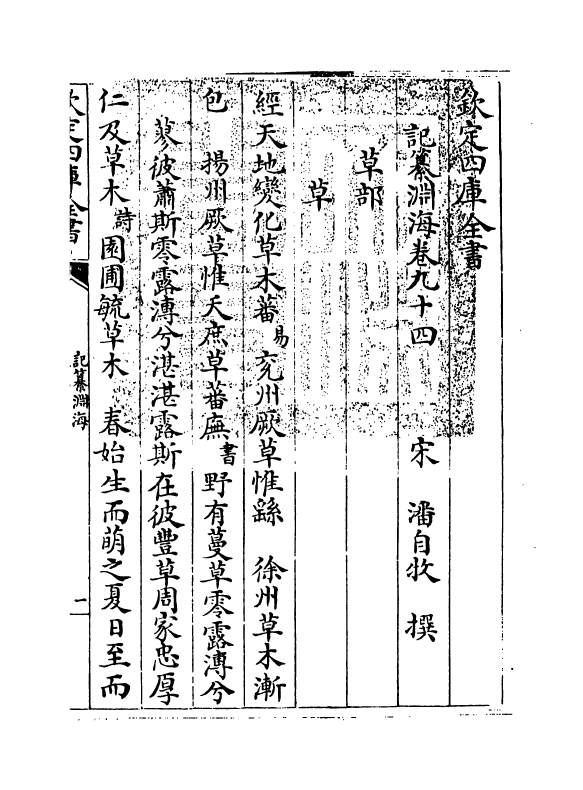 欽定四庫全書
記纂淵海卷九十四　宋　潘自牧　撰
草部
草
經天地變化草木蕃易兖州厥草惟繇　徐州草木漸
包　揚州厥草惟夭庶草蕃廡書野有蔓草零露漙兮
蓼彼蕭斯零露漙兮湛湛露斯在彼豐草周家忠厚
仁及草木詩園圃毓草木　春始生而萌之夏日至而
欽定四庫全書
記纂淵海
一